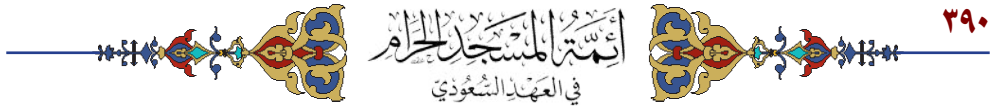 ٣٩٠
أَئِمَّةُ المَسْجِدِ الحَرَامِ
في العَهْدِ السُّعُودِيّ